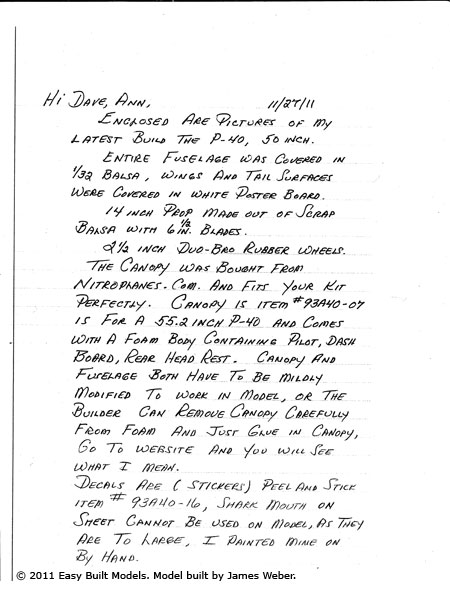 Hi Dave, Ann, 11/27/11
Enclosed Are Pictures of my
Latest Build The P-40, 50 inch.
Entire Fuselage was Covered in
1/32 Balsa, Wings And Tail Surfaces
Were Covered in White Poster Board.
14 inch Prop Made out of Scrap
Balsa with 6 1/2 in. Blades.
2 1/2 inch Duo-Bro Rubber Wheels.
The Canopy was Bought From
Nitroplanes.Com. And Fits Your Kit
Perfectly. Canopy is item #93A40-07
is For A 55.2 inch P-40 And Comes
With A Foam Body Containing Pilot, Dash
Board, Rear Head Rest. Canopy And
Fuselage Both Have To Be Mildly
Modified To Work in Model, or The
Builder Can Remove Canopy Carefully
From Foam And Just Glue in Canopy,
Go To Website And You Will See
What I Mean.
Decals Are (Stickers) Peel And Stick
item # 93A40-16, Shark Mouth on
Sheet Cannot Be Used on Model, As They
Are To Large, I Painted Mine on
By Hand.
© 2011 Easy Built Models. Model built by James Weber.